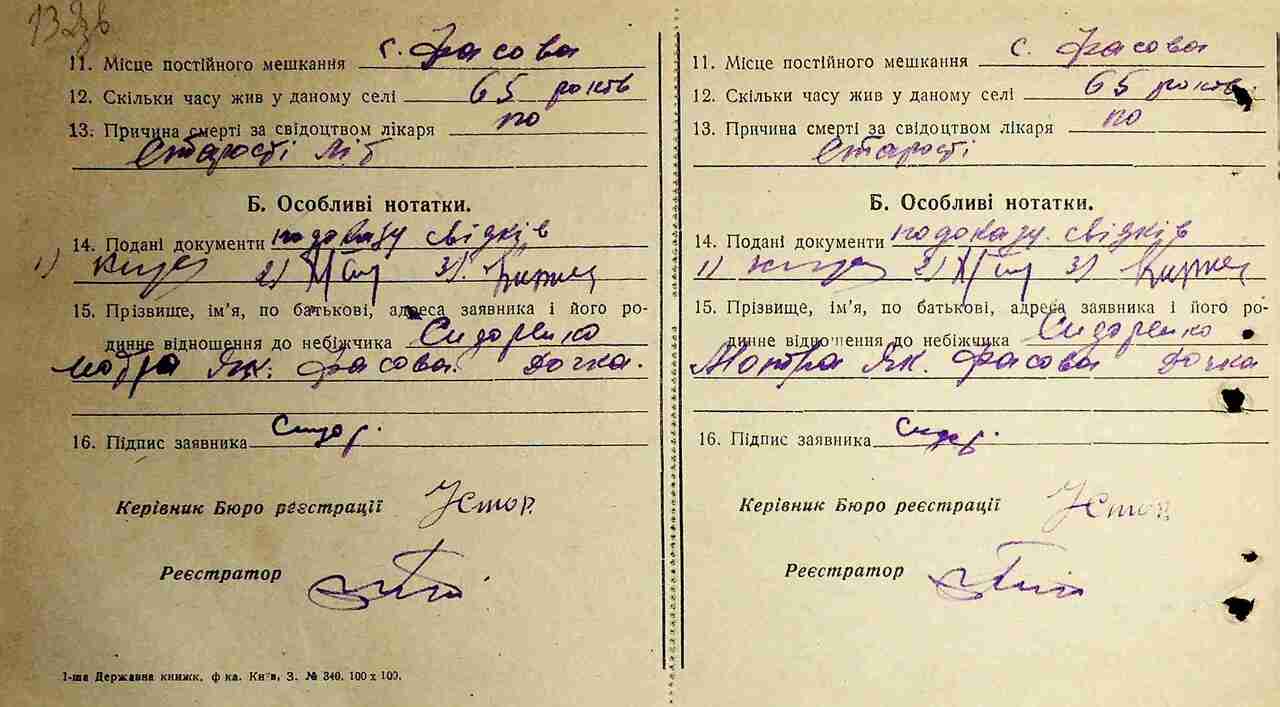 11. Місце постійного мешкання с. Фасова
12. Скільки часу жив у даному селі 65 років
13. Причина смерті за свідоцтвом лікаря по
старості літ
Б. Особливі нотатки.
14. Подані документи по доказу свідків
1) 2) 3)
15. Прізвище, ім'я, по батькові, адреса заявника і його ро-
динне відношення до небіжчика Сидоренко
Мотра Як. Фасова. дочка.
16. Підпис заявника Сидор.
Керівник Бюро реєстрації
Реєстратор
1-ша Державна книжк. ф-ка. Київ, З. № 340. 100 х 100.
11. Місце постійного мешкання с. Фасова
12. Скільки часу жив у даному селі 65 років
13. Причина смерті за свідоцтвом лікаря по
старості
Б. Особливі нотатки.
14. Подані документи по доказу свідків
1) 2) 3)
15. Прізвище, ім'я, по батькові, адреса заявника і його ро-
динне відношення до небіжчика Сидоренко
Мотра Як. Фасова дочка
16. Підпис заявника Сидор.
Керівник Бюро реєстрації
Реєстратор